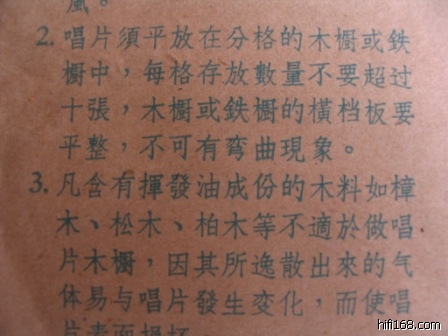 風。
2. 唱片須平放在分格的木橱或鉄
橱中，每格存放數量不要超过
十張，木橱或鉄橱的橫档板要
平整，不可有弯曲現象。
3. 凡含有揮發油成份的木料如樟
木、松木、柏木等不適於做唱
片木橱，因其所逸散出來的气
体易与唱片發生变化，而使唱
片表面損坏
hifi168.com